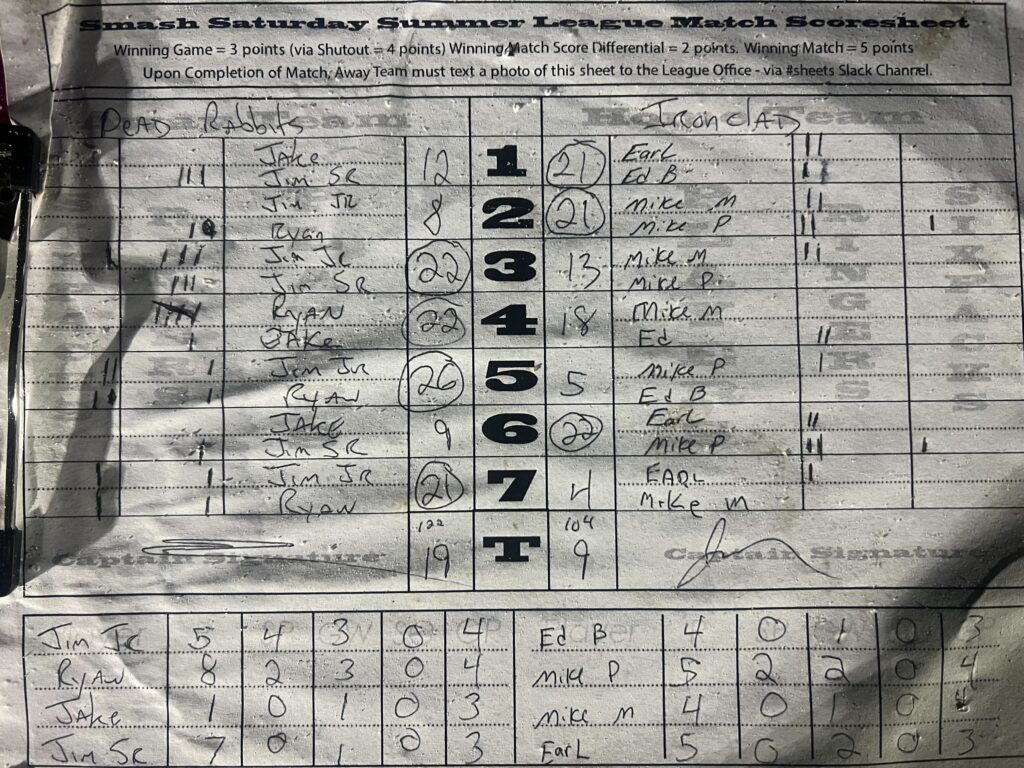 Smash Saturday Summer League Match Scoresheet
Winning Game = 3 points (via Shutout = 4 points) Winning Match Score Differential = 2 points. Winning Match = 5 points
Upon Completion of Match, Away Team must text a photo of this sheet to the League Office - via #sheets Slack Channel.
DEAD Rabbits IronclAD
JAKE 12 1 21 Earl
Jim SR Ed B
Jim JR 8 2 21 Mike M
Ryan Mike P
Jim Jr 22 3 13 Mike M
Jim SR Mike P
RYAN 22 4 18 Mike M
JAKe Ed
Jim JR 26 5 5 Mike P
RYAN Ed B
JAKE 9 6 22 Earl
Jim SR Mike P
Jim JR 21 7 4 EARL
RYAN Mike M
122 104
Captain Signature 19 T 9 Captain Signature
Jim JR 5 4 3 0 4 Ed B 4 0 1 0 3
RYAN 8 2 3 0 4 Mike P 5 2 2 0 4
JAKe 1 0 1 0 3 Mike M 4 0 1 0
Jim SR 7 0 1 0 3 EarL 5 0 2 0 3